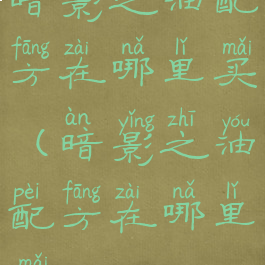 暗影之油配
fāng zài nǎ lǐ mǎi
方在哪里买
àn yǐng zhī yóu
(暗影之油
pèi fāng zài nǎ lǐ
配方在哪里
mǎi